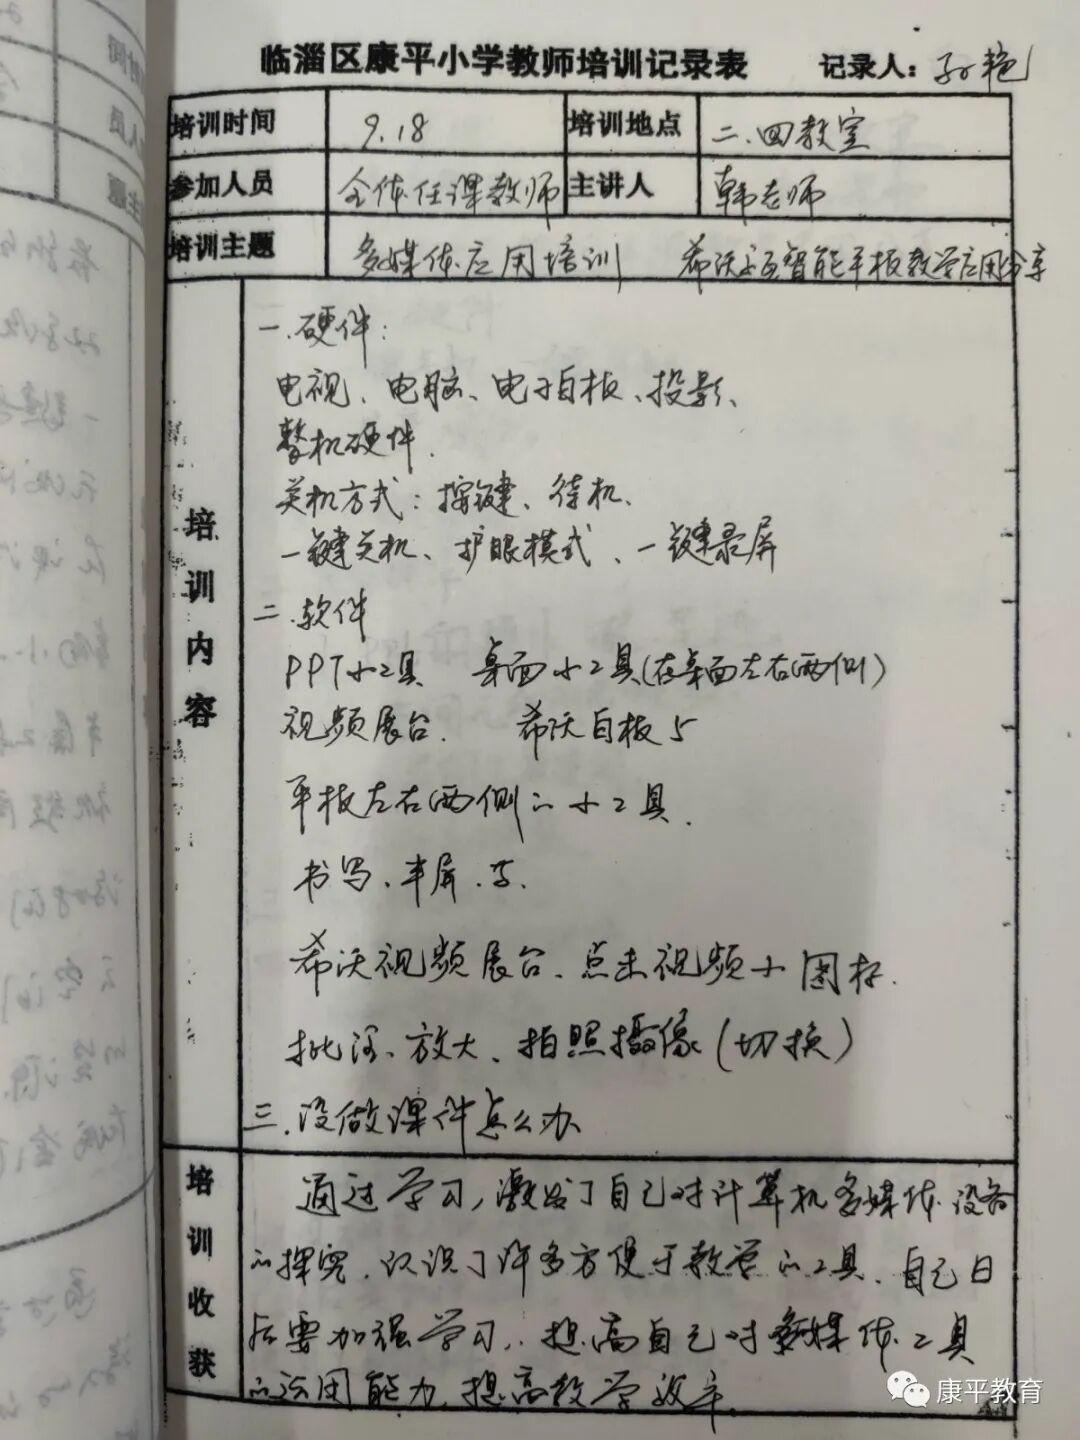 临淄区康平小学教师培训记录表 记录人：孙艳
培训时间 9.18 培训地点 二.四教室
参加人员 全体任课教师 主讲人 韩老师
培训主题 多媒体应用培训 希沃交互智能平板教学应用分享
培训内容
一.硬件：
电视、电脑、电子白板、投影、
整机硬件.
关机方式：按键、待机、
一键关机、护眼模式、一键录屏
二.软件
PPT小工具 桌面小工具(在桌面左右两侧)
视频展台. 希沃白板5
平板左右两侧的小工具.
书写、半屏、
希沃视频展台、点击视频小图标.
批注、放大、拍照摄像(切换)
三.没做课件怎么办
培训收获
通过学习,激发了自己对计算机多媒体设备
的探究.认识了许多方便于教学的工具.自己日
后要加强学习,.提高自己对多媒体工具
的运用能力.提高教学效率.
康平教育